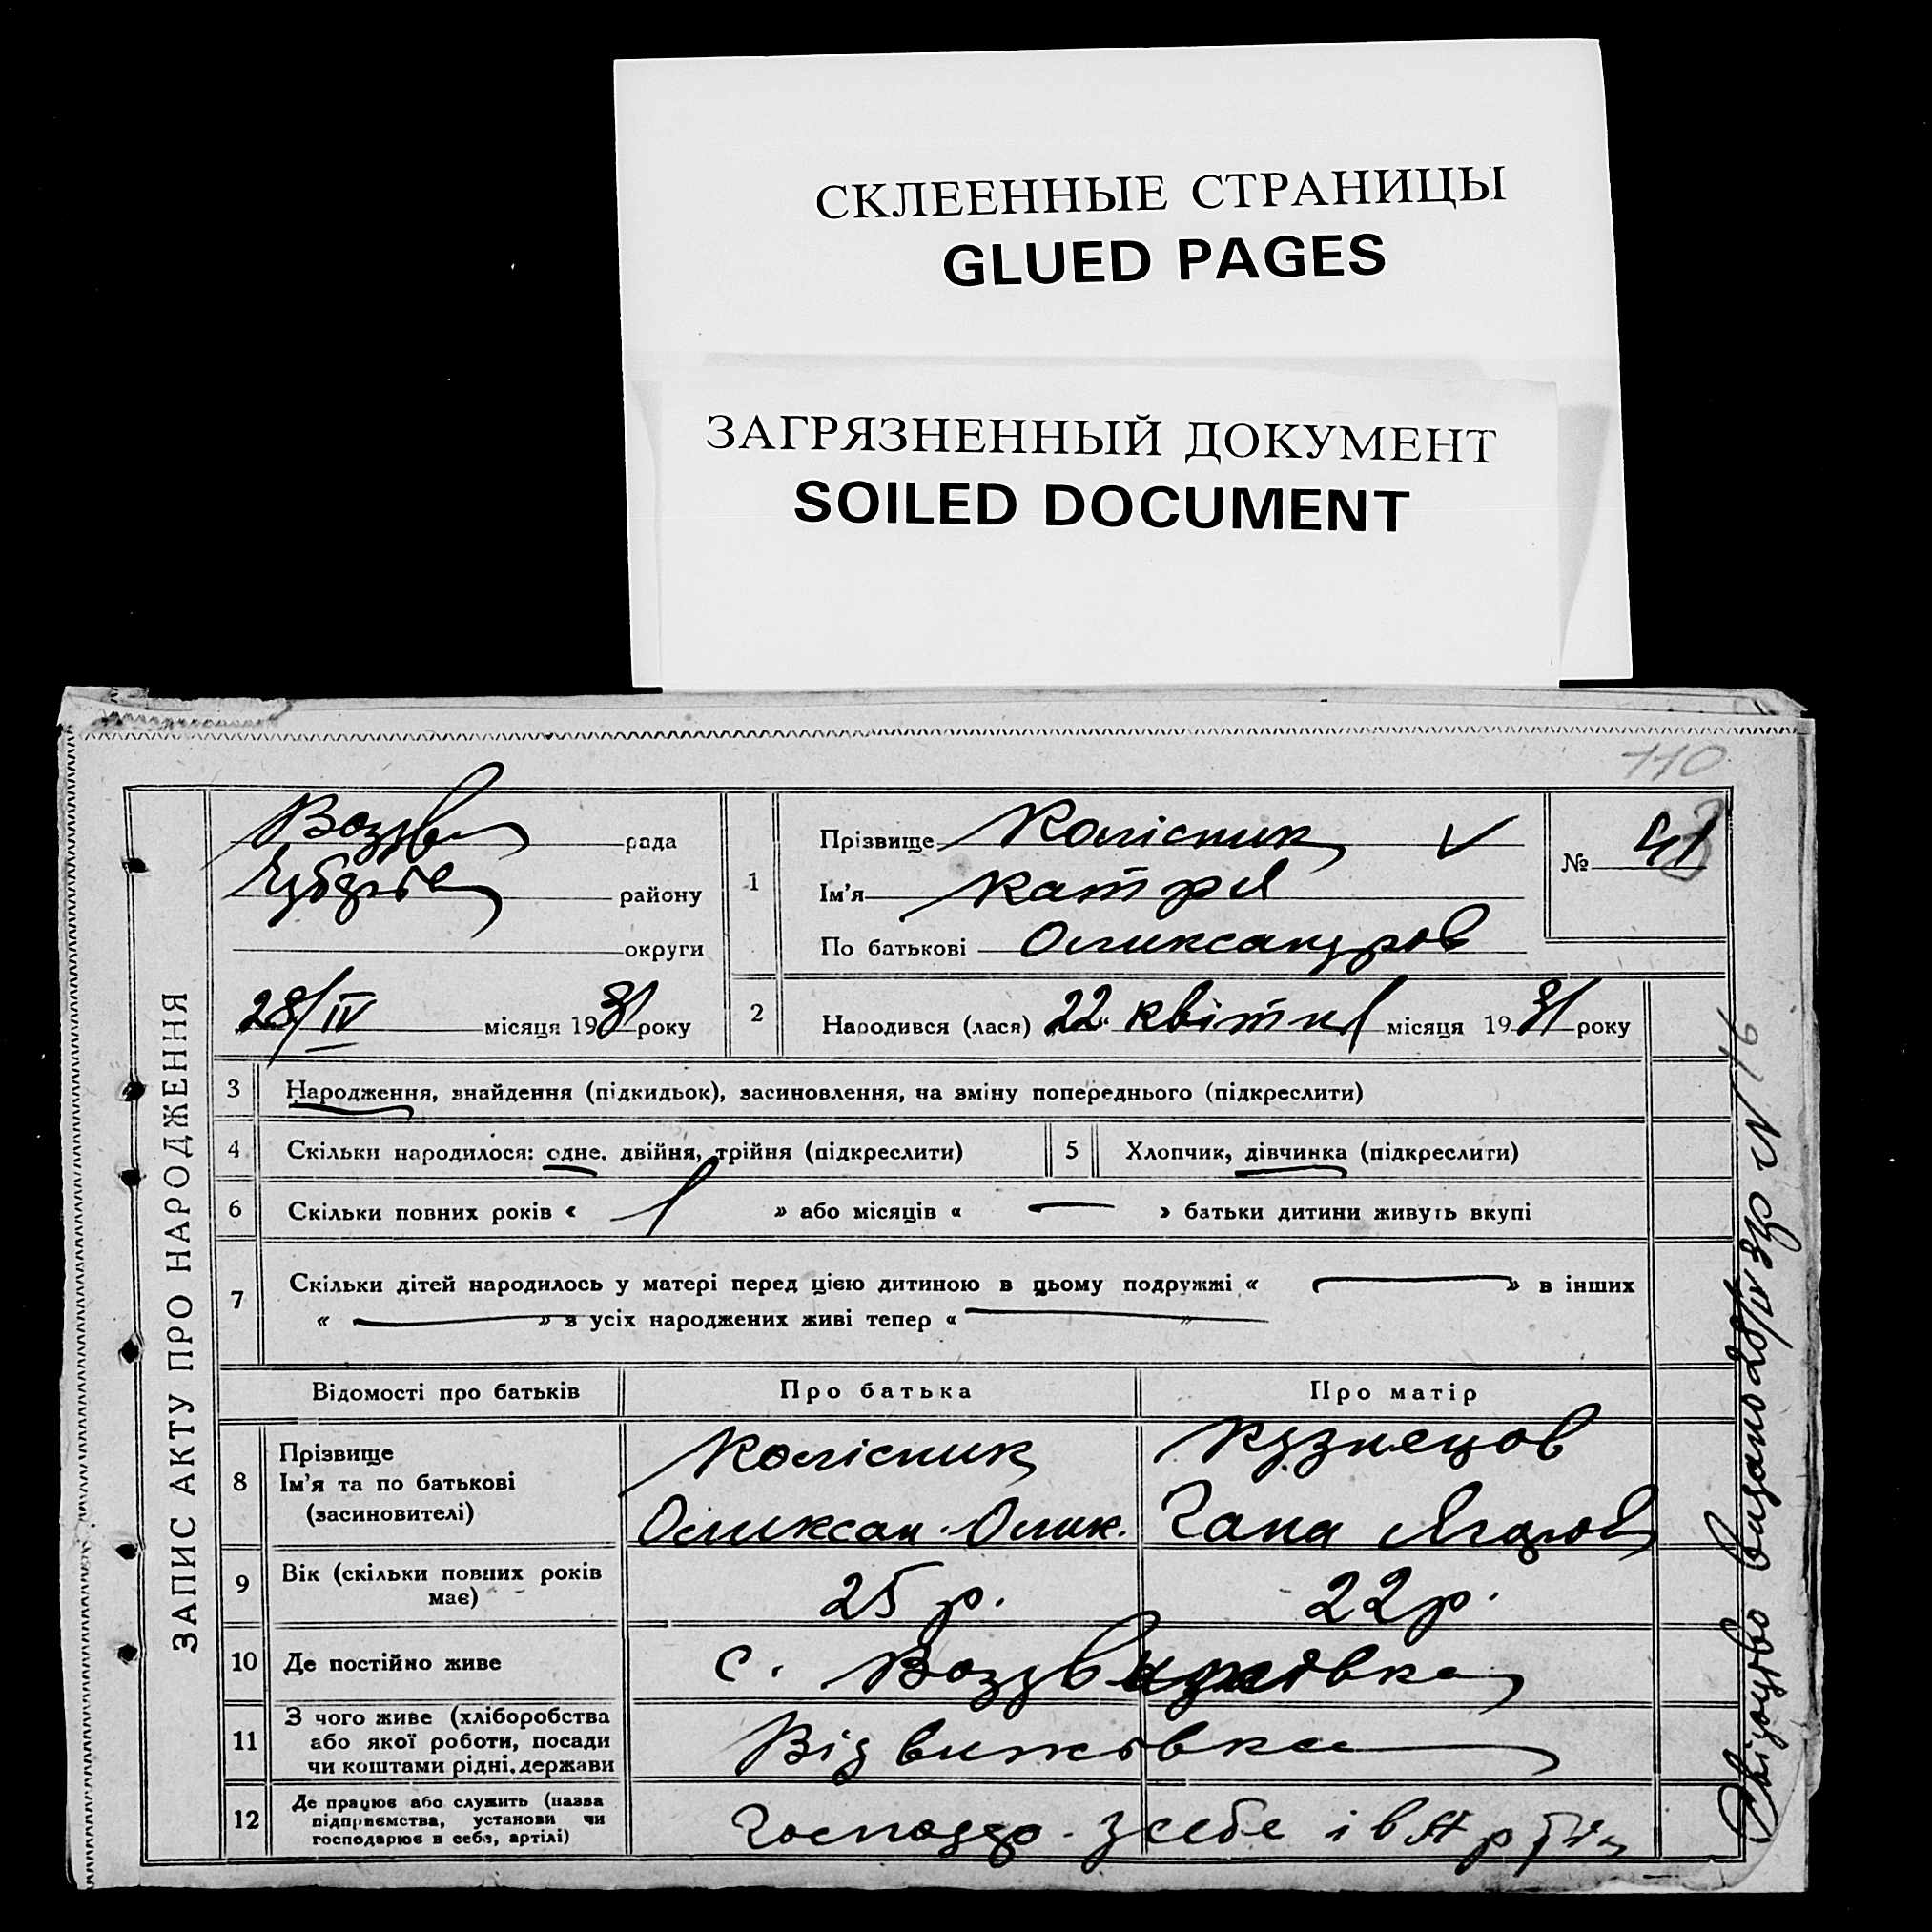 СКЛЕЕННЫЕ СТРАНИЦЫ
GLUED PAGES
ЗАГРЯЗНЕННЫЙ ДОКУМЕНТ
SOILED DOCUMENT
110
ЗАПИС АКТУ ПРО НАРОДЖЕННЯ
Воздв рада
району
округи
28/IV місяця 1931 року
1
Прізвище Колісник
Ім'я Катря
По батькові Олександров
№ 41
2
Народився (лася) 22 квітня місяця 1931 року
3 Народження, знайдення (підкидьок), засиновлення, на зміну попереднього (підкреслити)
4 Скільки народилося: одне, двійня, трійня (підкреслити)
5 Хлопчик, дівчинка (підкреслити)
6 Скільки повних років « 1 » або місяців « — » батьки дитини живуть вкупі
7 Скільки дітей народилось у матері перед цією дитиною в цьому подружжі « — » в інших
« — » з усіх народжених живі тепер « — »
Відомості про батьків Про батька Про матір
8 Прізвище
Ім'я та по батькові
(засиновителі)
Колісник
Олександ. Олек.
Кузнєцов
Гана
9 Вік (скільки повних років
має)
25 р. 22 р.
10 Де постійно живе с. Воздвижовка
11 З чого живе (хліборобства
або якої роботи, посади
чи коштами рідні, держави
Від
12 Де працює або служить (назва
підприємства, установи чи
господарює в себе, артілі)
Господар. у себе і в
видано 28/IV 31р N 16